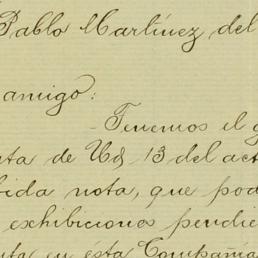 Pablo Martínez del
amigo:
Tenemos el g
ta de Ud 13 del act
bida nota, que pod
exhibiciones pendie
uta en ésta Compañía